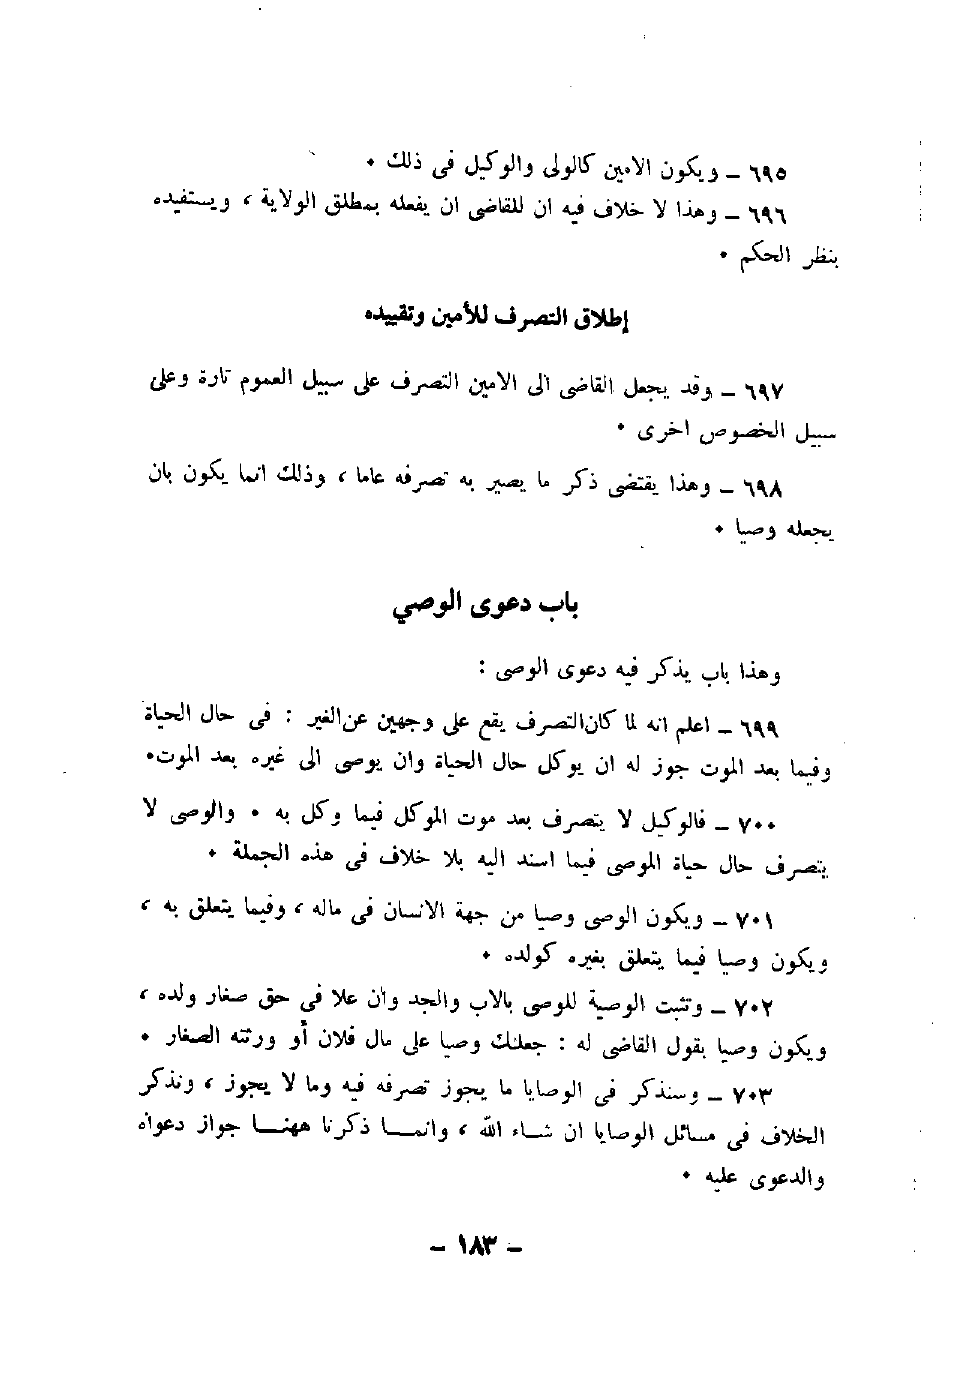 ٦٩٥ ـ ويكون الامين كالولى والوكيل فى ذلك .
٦٩٦ ـ وهذا لا خلاف فيه ان للقاضى ان يفعله بمطلق الولاية ، ويستفيده
بنظر الحكم .
إطلاق التصرف للأمين وتقييده
٦٩٧ ـ وقد يجعل القاضى الى الامين التصرف على سبيل العموم تارة وعلى
سبيل الخصوص اخرى .
٦٩٨ ـ وهذا يقتضى ذكر ما يصير به تصرفه عاما ، وذلك انما يكون بان
يجعله وصيا .
باب دعوى الوصي
وهذا باب يذكر فيه دعوى الوصى :
٦٩٩ ـ اعلم انه لما كان التصرف يقع على وجهين عن الغير : فى حال الحياة
وفيما بعد الموت جوز له ان يوكل حال الحياة وان يوصى الى غيره بعد الموت.
٧٠٠ ـ فالوكيل لا يتصرف بعد موت الموكل فيما وكل به . والوصى لا
يتصرف حال حياة الموصى فيما اسند اليه بلا خلاف فى هذه الجملة .
٧٠١ ـ ويكون الوصى وصيا من جهة الانسان فى ماله ، وفيما يتعلق به ،
ويكون وصيا فيما يتعلق بغيره كولده .
٧٠٢ ـ وتثبت الوصية للوصى بالاب والجد وان علا فى حق صغار ولده ،
ويكون وصيا بقول القاضى له : جعلتك وصيا على مال فلان أو ورثته الصغار .
٧٠٣ ـ وسنذكر فى الوصايا ما يجوز تصرفه فيه وما لا يجوز ، ونذكر
الخلاف فى مسائل الوصايا ان شاء الله ، وانما ذكرنا ههنا جواز دعواه
والدعوى عليه .
ـ ١٨٣ ـ